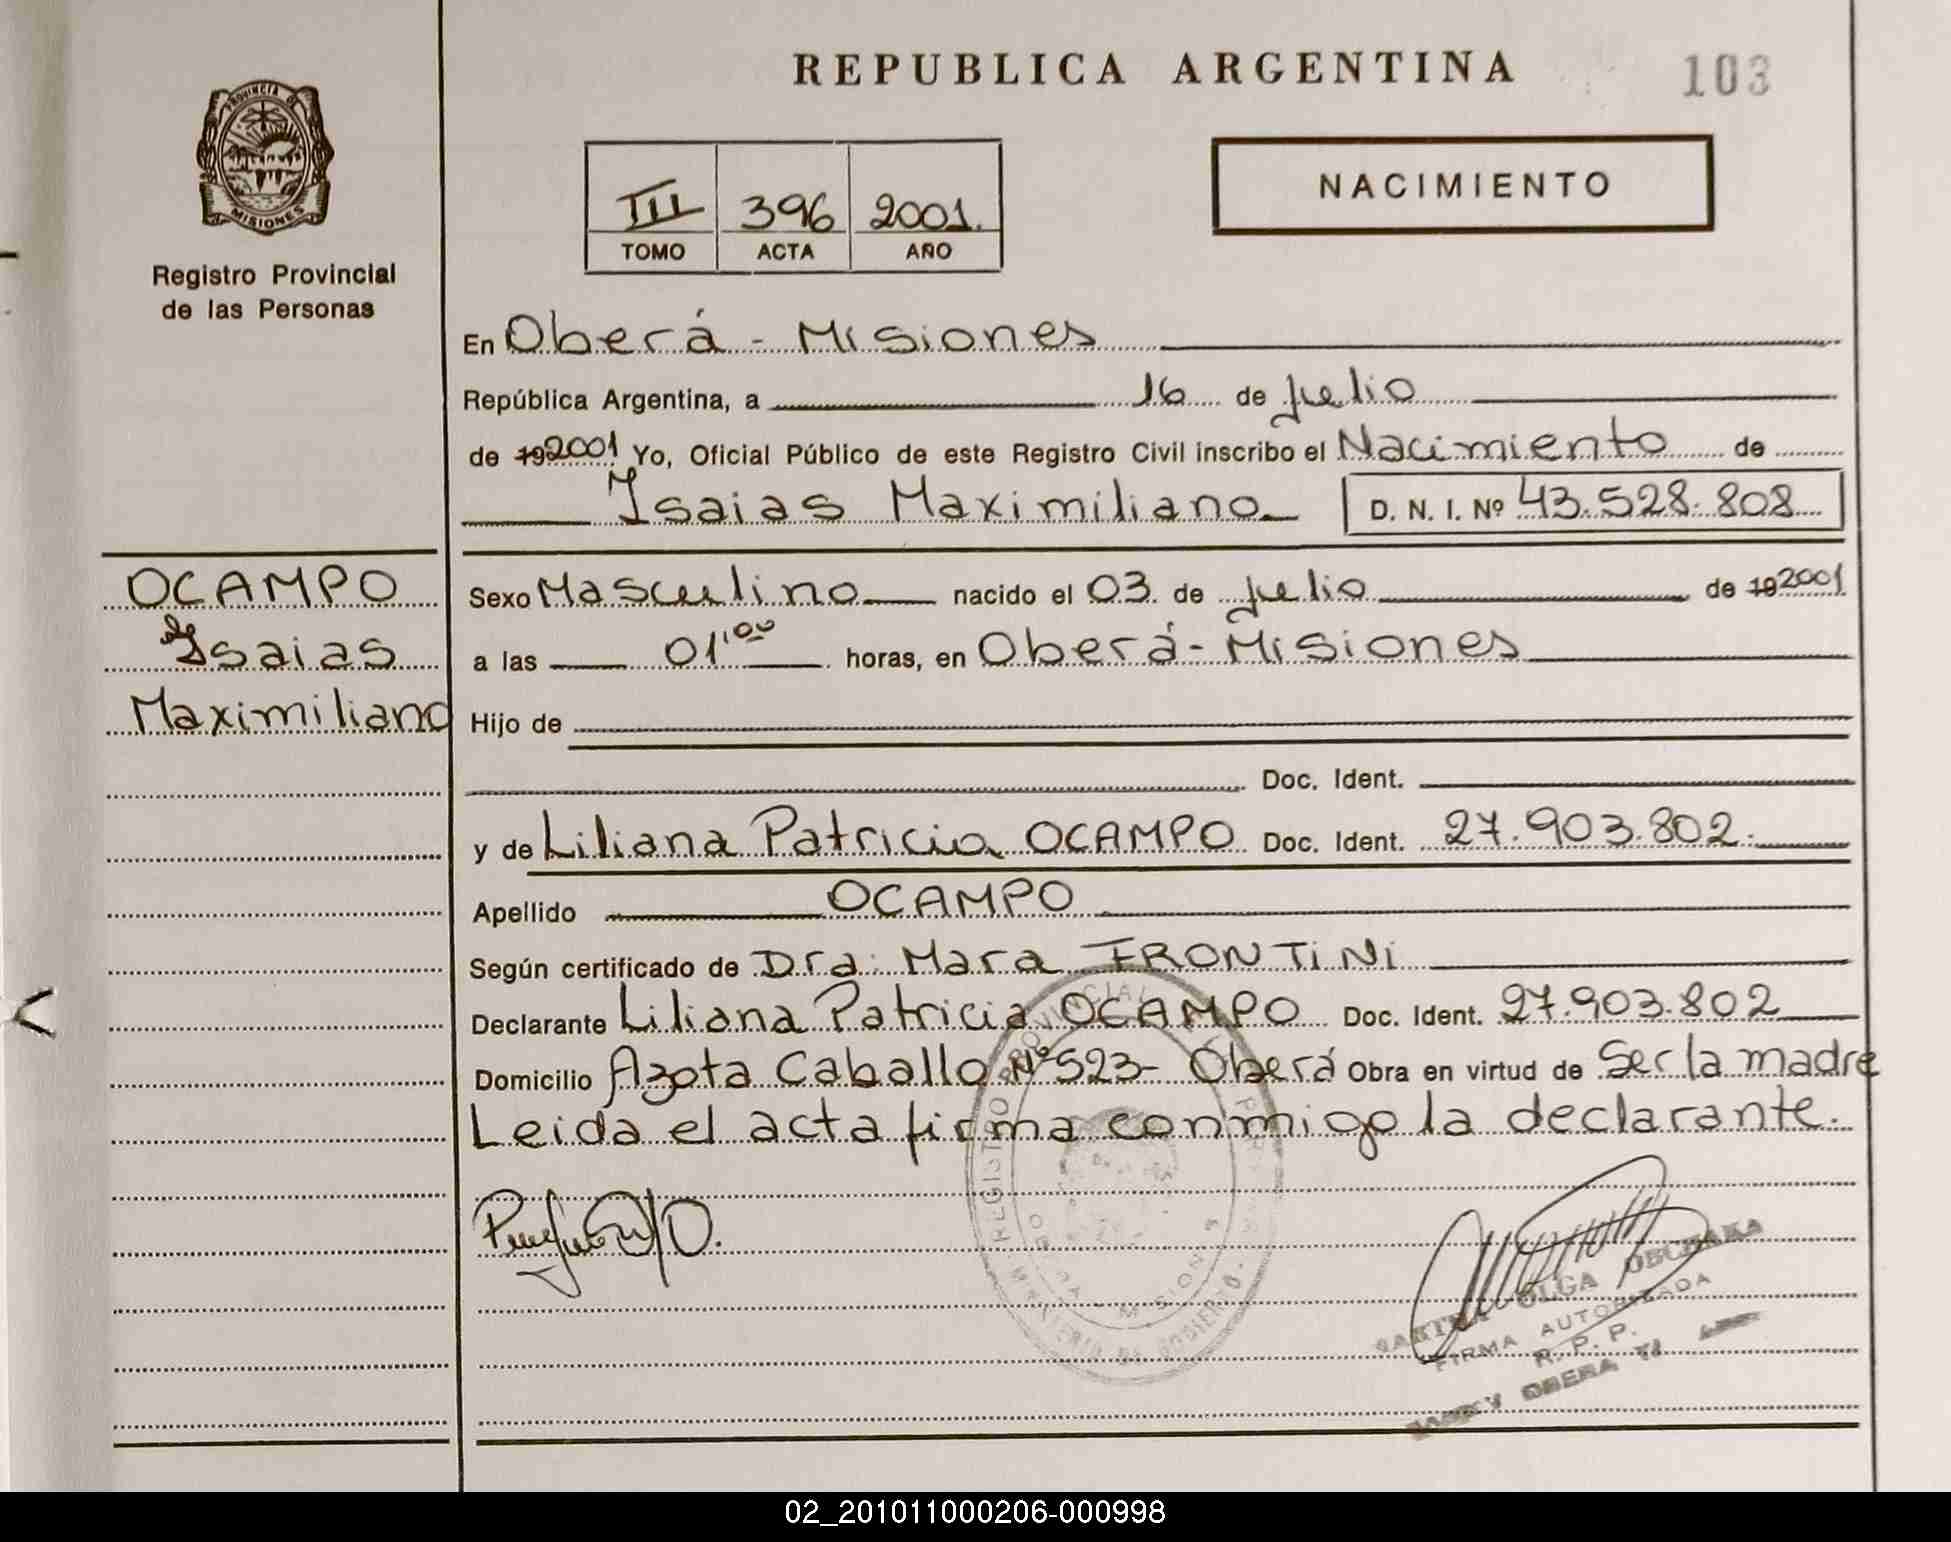 REPUBLICA ARGENTINA
103
PROVINCIA D
MISIONES
Registro Provincial
de las Personas
III 396 2001.
TOMO ACTA AÑO
NACIMIENTO
En Oberá - Misiones
República Argentina, a 16 de Julio
de 192001 Yo, Oficial Público de este Registro Civil inscribo el Nacimiento de
Isaias Maximiliano D. N. I. Nº 43.528.808
OCAMPO
Isaias
Maximiliano
Sexo Masculino nacido el 03 de Julio de 192001
a las 01'00 horas, en Oberá - Misiones
Hijo de
Doc. Ident.
y de Liliana Patricia OCAMPO Doc. Ident. 27.903.802.
Apellido OCAMPO
Según certificado de Dra. Mara FRONTiNi
Declarante Liliana Patricia OCAMPO Doc. Ident. 27.903.802
Domicilio Azota Caballo Nº 523 - Oberá Obra en virtud de Ser la madre
Leida el acta firma conmigo la declarante.
REGISTRO PROVINCIAL
MINISTERIO DE GOBIERNO
OLGA
FIRMA AUTORIZADA
R. P. P.
OBERA
02_201011000206-000998